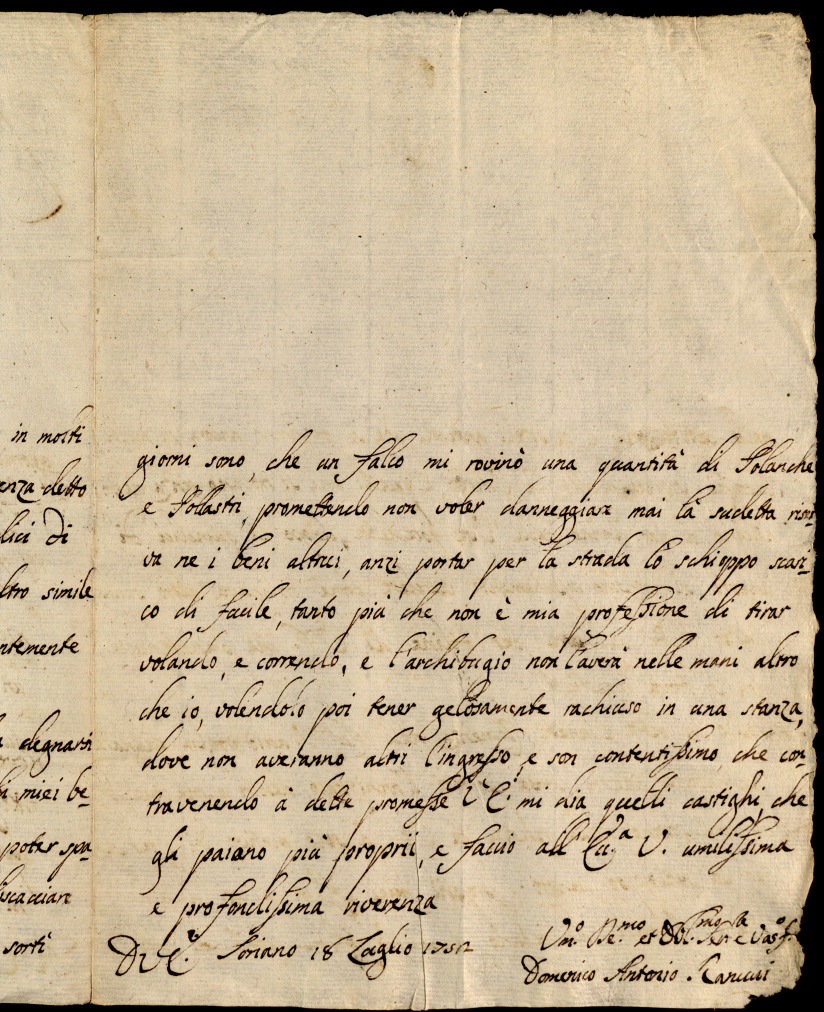 in molti
enza detto
lici di
ltro simile
ntemente
degnarsi
i miei be-
poter spa-
scacciare
sorti
giorni sono, che un falco mi rovinò una quantità di Polanche
e Pollastri, promettendo non voler danneggiare mai la sudetta riser-
va ne i beni altrui, anzi portar per la strada lo schioppo scari-
co di facile, tanto più che non è mia professione di tirar
volando, e correndo, e l'archibugio non l'averà nelle mani altro
che io, volendolo poi tener gelosamente rachiuso in una stanza,
dove non averanno altri l'ingresso, e son contentissimo che con-
travenendo à dette promesse V. E. mi dia quelli castighi, che
gli paiano più proprii, e faccio all' Ecc.a V. umilissima
e profondissima riverenza
Di V. E. Soriano 18 Luglio 1752
Um.o De.mo et Obl.mo Ser.e Vas.o
Domenico Antonio